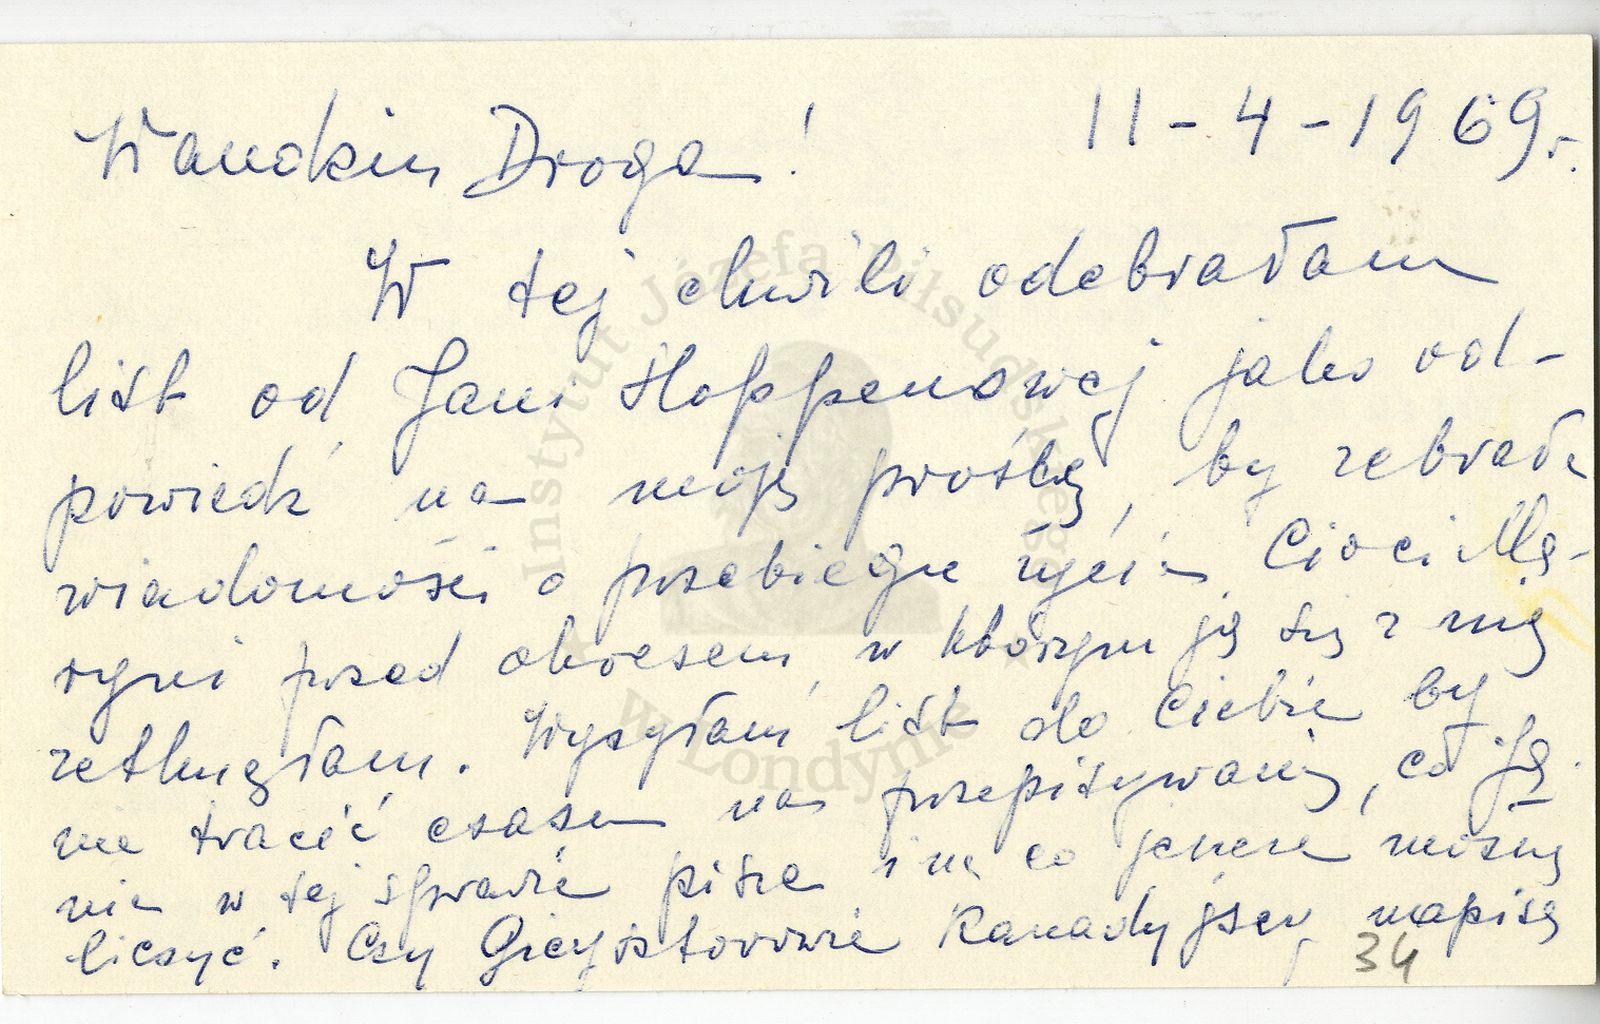 11-4-1969r.
Wandziu Droga!
W tej chwili odebrałam
list od Jani Hoppenowej jako od-
powiedź na moją prośbę, by zebrała
wiadomości o przebiegu życia Cioci Ma-
ryni przed okresem, w którym ja się z nią
zetknęłam. Wysyłam list do Ciebie by
nie tracić czasu na przepisywanie, co Ja-
nia w tej sprawie pisze i na co jeszcze można
liczyć. Czy Kanadyjscy napisą
34
Instytut Józefa Piłsudskiego
w Londynie